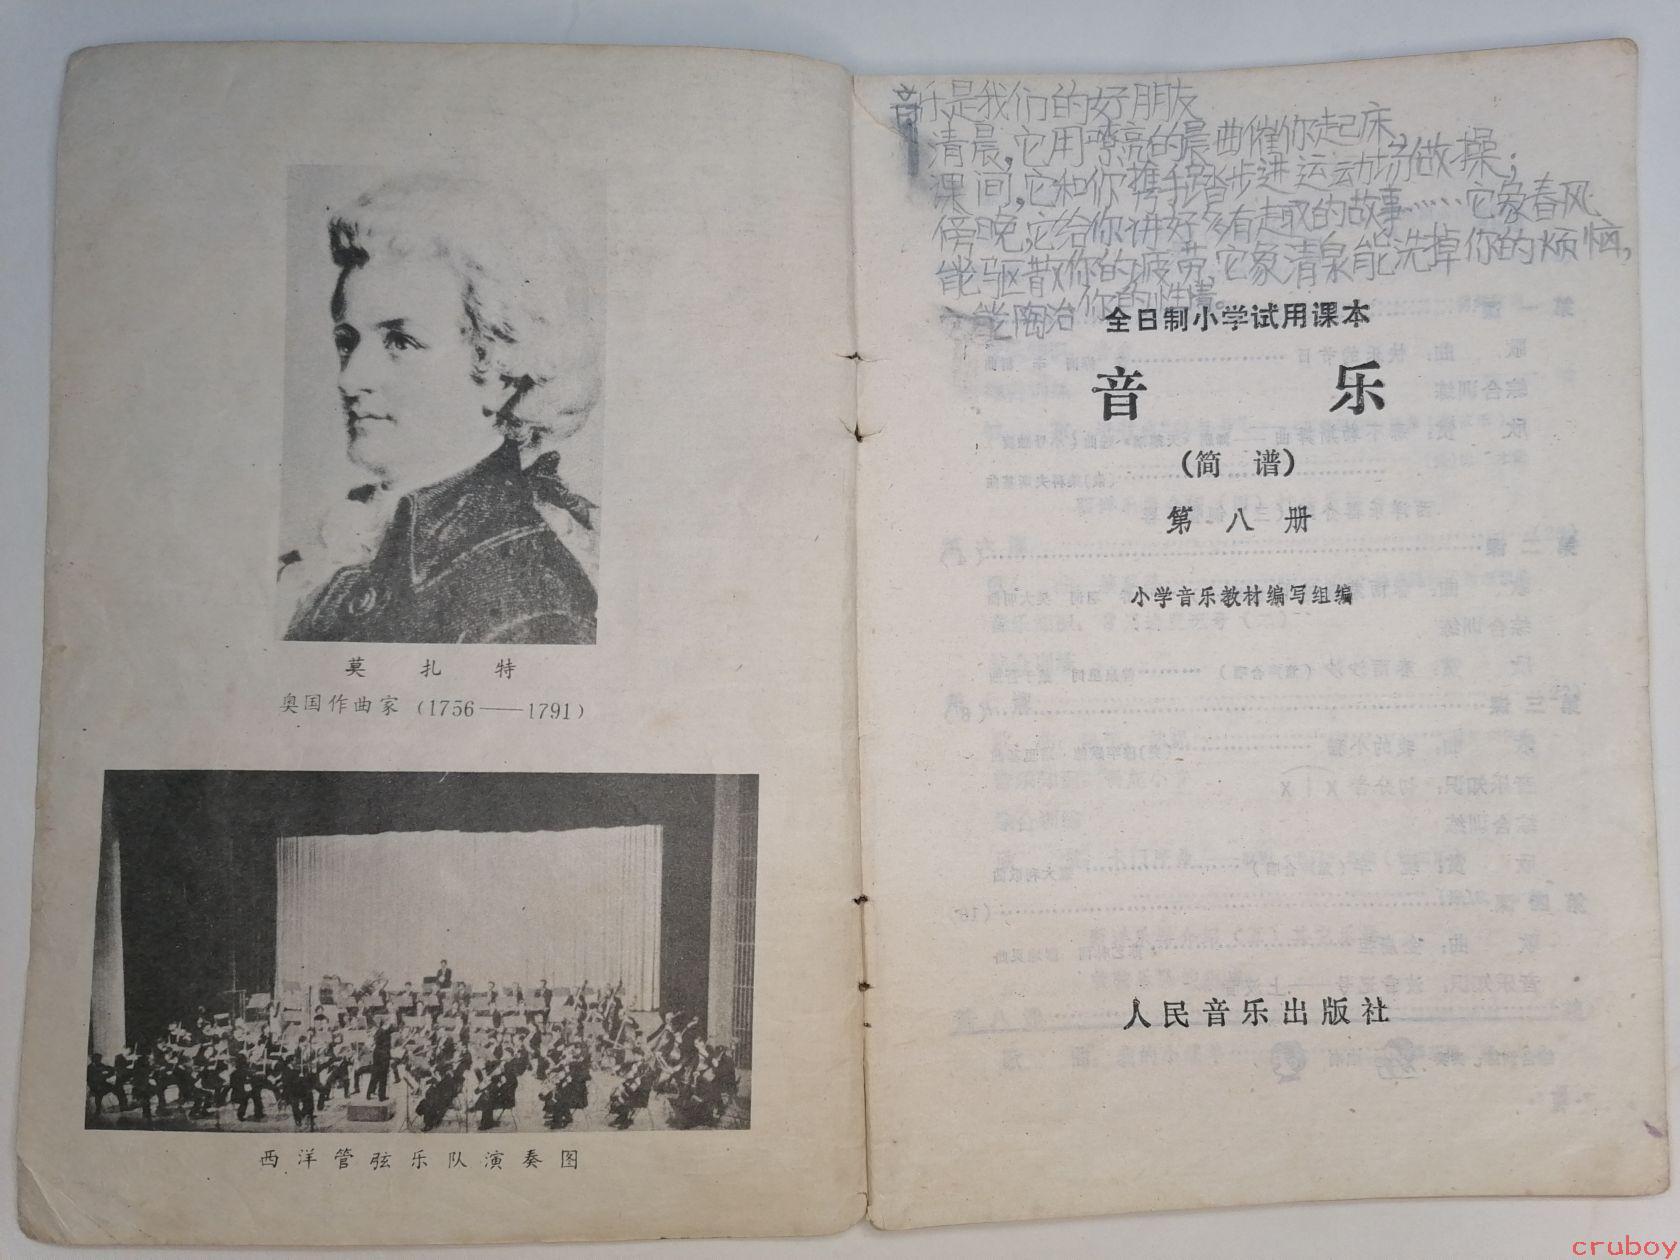 莫扎特
奥国作曲家(1756——1791)
西洋管弦乐队演奏图
音乐是我们的好朋友
清晨,它用嘹亮的晨曲催你起床,
课间,它和你携手踏步进运动场做操;
傍晚,它给你讲好多有趣的故事……它象春风
能驱散你的疲劳,它象清泉能洗掉你的烦恼,
它能陶冶你的性情。
全日制小学试用课本
音乐
(简谱)
第八册
小学音乐教材编写组编
人民音乐出版社
cruboy